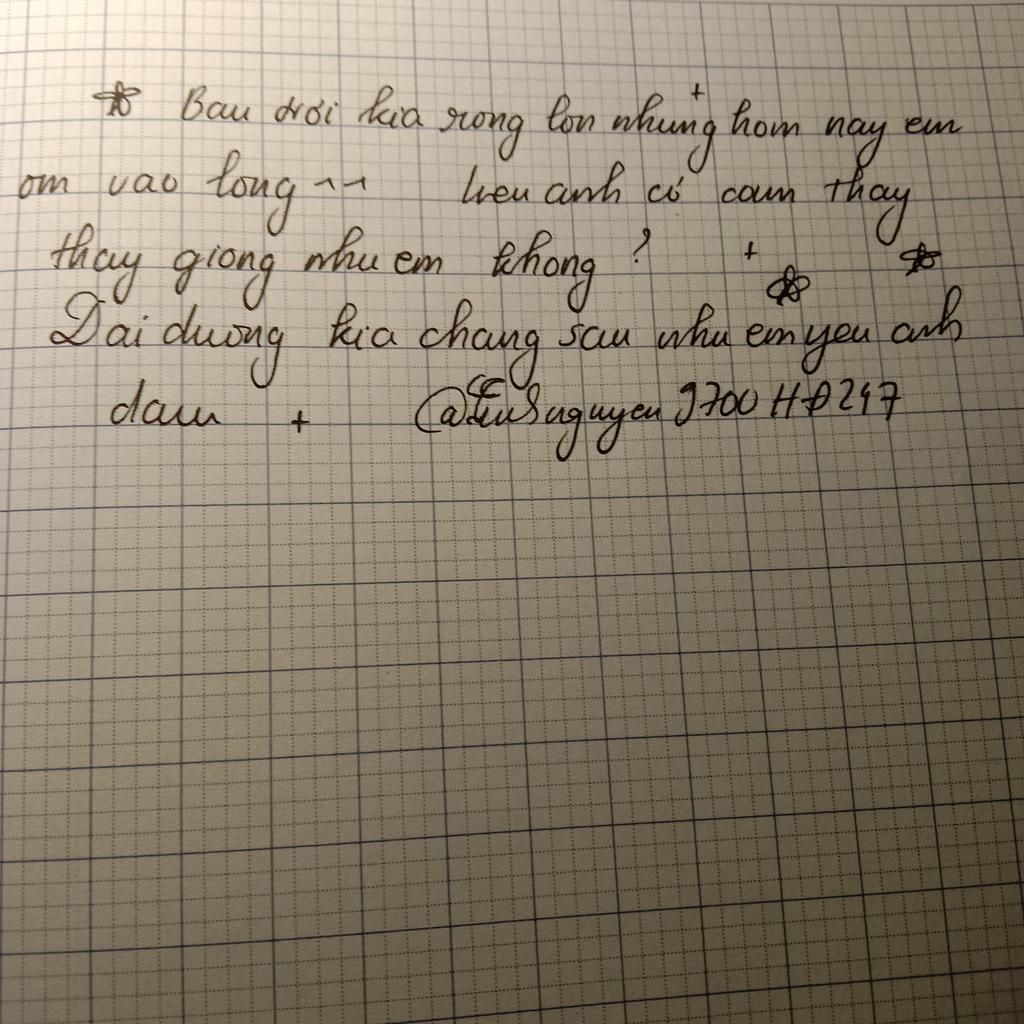 Bau trơi kia rong lon nhung hom nay em
om vao long ~~ lieu anh có cam thay
thay giong nhu em khong ?
Dai duong kia chang sau nhu em yeu anh
dau + nguyen 9700 HĐ247